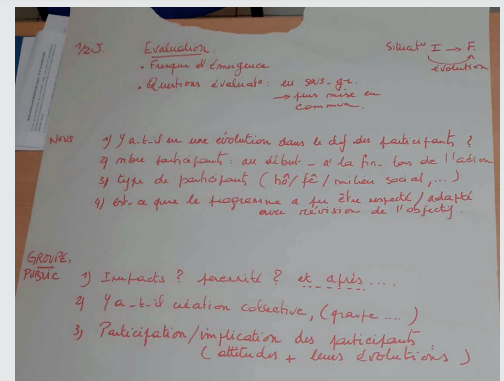 1/2 J. Evaluation. Situat° I → F.
évolution
• Fresque d'émergence
• Questions évaluat°: en sous-gr.
→ puis mise en
commun.
NOUS 1) Y a-t-il eu une évolution dans le déf des participants ?
2) nbre participants: au début - à la fin - lors de l'action
3) type de participants (hô/fê/milieu social, ...)
4) est-ce que le programme a pu être respecté/adapté
avec révision de l'objectif.
GROUPE,
PUBLIC 1) Impacts ? pérennité ? et après ....
2) Y a-t-il création collective, (groupe ....)
3) Participation/implication des participants
(attitudes + leurs évolutions)